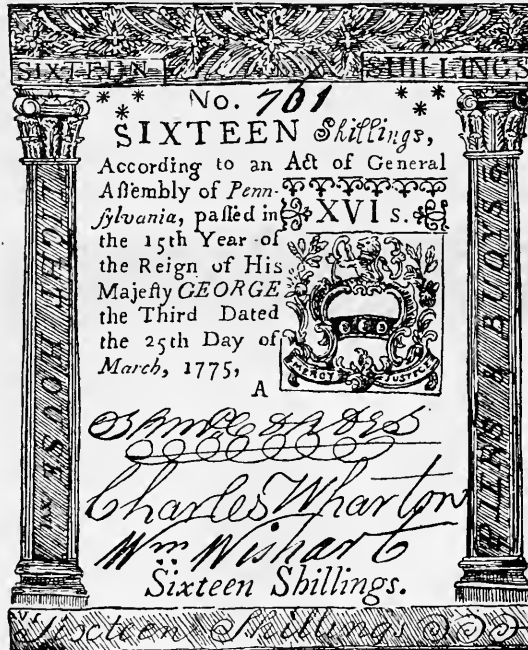 SIXTEEN SHILLINGS
No. 701
SIXTEEN Shillings,
According to an Act of General
Aſſembly of Penn-
ſylvania, paſſed in
XVI s.
the 15th Year of
the Reign of His
Majeſty GEORGE
the Third Dated
the 25th Day of
March, 1775,
MERCY JUSTICE
A
Charles Wharton
Wm Wishart
Sixteen Shillings.
Sixteen Shillings
LIGHT HOUSE
PIERS & BUOYS